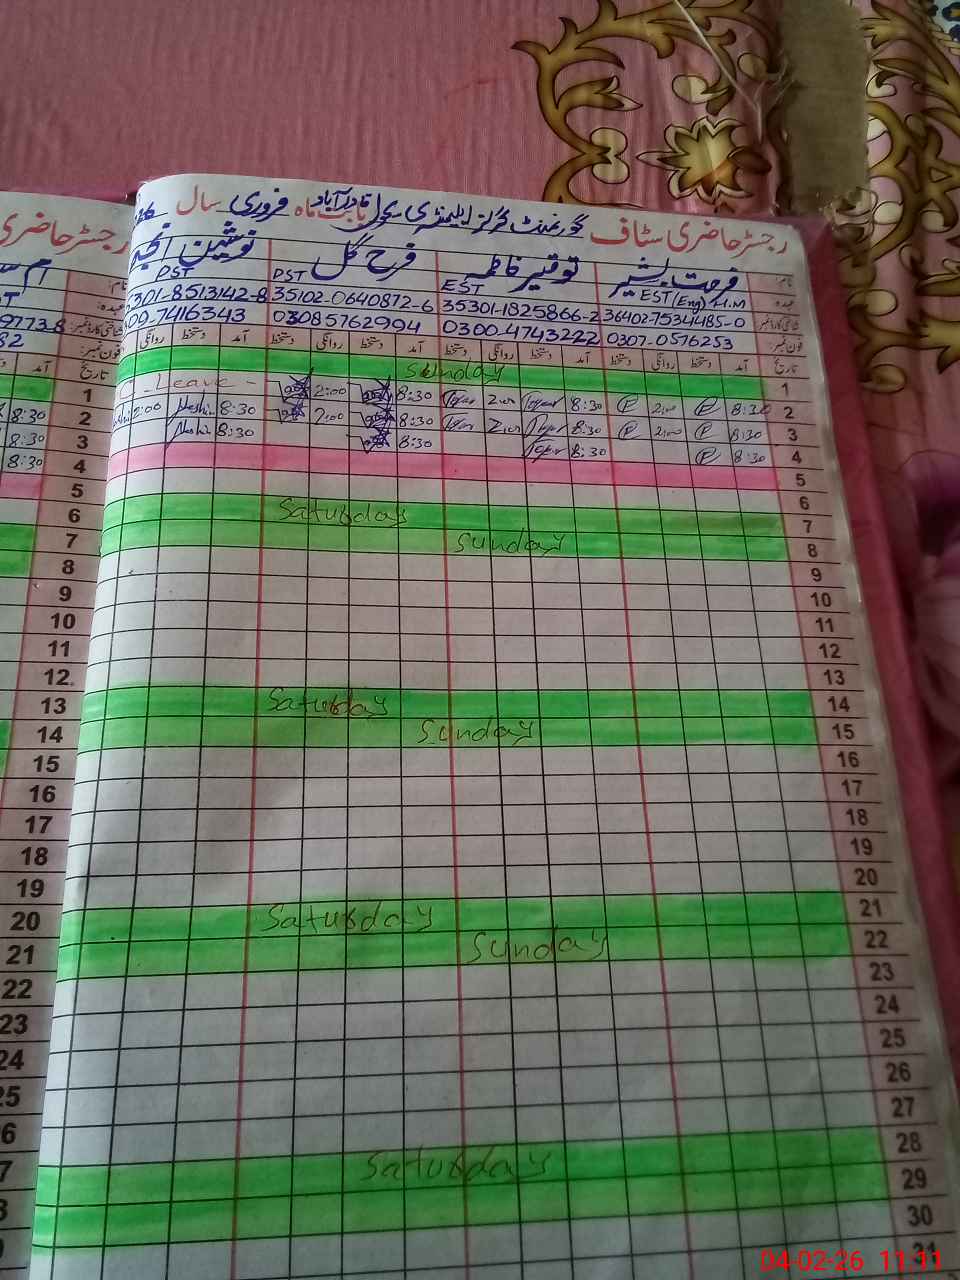 رجسٹر حاضری سٹاف گورنمنٹ گرلز ایلیمنٹری سکول قادرآباد بابت ماہ فروری سال
رجسٹر حاضری
نام: فرحت بشیر توقیر فاطمہ فرح گل نوشین
عہدہ: EST (Eng) H.M EST PST PST
شناختی کارڈ نمبر: 36402-7534485-0 35301-1825866-2 35102-0640872-6 301-8513142-8
9773-8
فون نمبر: 0307-0576253 0300-4743222 03085762994 7416343
82
تاریخ آمد دستخط روانگی دستخط آمد دستخط روانگی دستخط آمد دستخط روانگی دستخط آمد دستخط روانگی
تاریخ آمد
1 Sunday
2 8:30 2:00 8:30 2:00 8:30 2:00 C-Leave-
3 8:30 2:00 8:30 2:00 8:30 2:00 8:30 2:00
4 8:30 8:30 8:30 8:30
5
6
7 Saturday
8 Sunday
9
10
11
12
13
14 Saturday
15 Sunday
16
17
18
19
20
21 Saturday
22 Sunday
23
24
25
26
27
28 Saturday
29
30
31
1
2 8:30
3 8:30
4 8:30
5
6
7
8
9
10
11
12
13
14
15
16
17
18
19
20
21
22
23
24
25
04-02-26 11:11